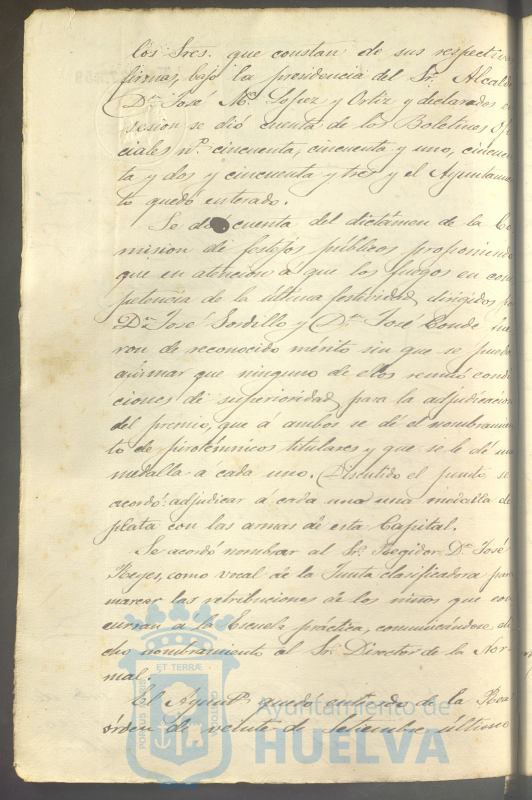 los Sres. que constan de sus respectivas
firmas, bajo la presidencia del Sr. Alcalde
Dn. José Mª Lopez y Ortiz y declarados en
sesion se dió cuenta de los Boletines Ofi
ciales nº. cincuenta, cincuenta y uno, cincuen
ta y dos y cincuenta y tres y el Ayuntamien
to quedó enterado.
Se dió cuenta del dictámen de la Co
mision de festejos públicos proponiendo
que en atencion á que los fuegos en com
petencia de la última festividad, dirigidos por
Dn. José Gordillo y Dn. José Conde fue
ron de reconocido mérito sin que se pueda
afirmar que ninguno de ellos reunió condi
ciones de superioridad para la adjudicacion
del premio, que á ambos se dé el nombramien
to de pirotécnicos titulares y que se le dé una
medalla á cada uno. Discutido el punto se
acordó: adjudicar á cada uno una medalla de
plata con las armas de esta Capital.
Se acordó nombrar al Sr. Regidor Dn. José
Reyes, como vocal de la Junta clasificadora para
marcar las retribuciones de los niños que con
curran á la Escuela práctica, comunicándose di
cho nombramiento al Sr. Director de la Nor
mal.
El Ayuntº. quedó enterado de la Real
órden de veinte de Setiembre último
PORTUS MARIS ET TERRÆ CUSTODIA
Ayuntamiento de
HUELVA